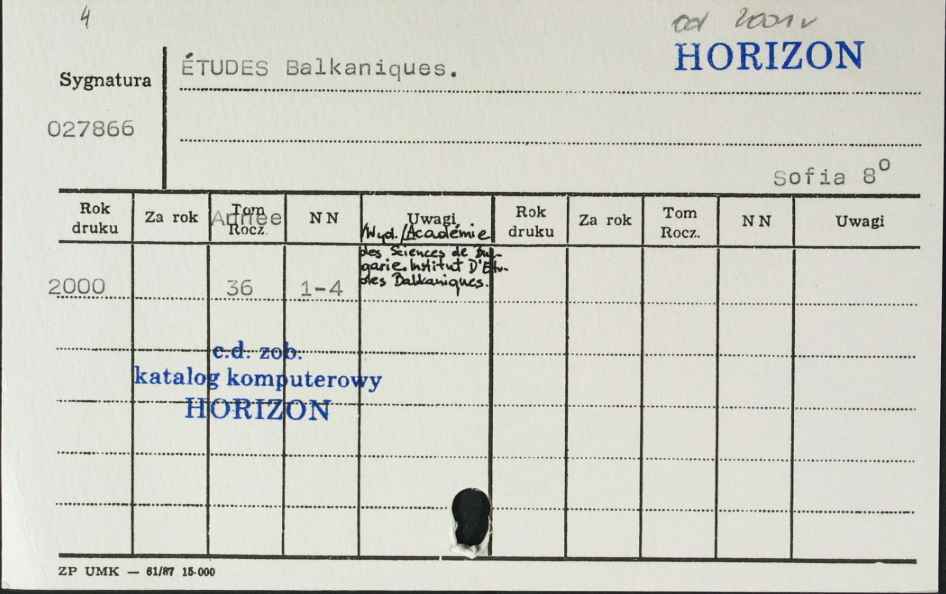 4
od 2001 r
HORIZON
Sygnatura
ÉTUDES Balkaniques.
027866
Sofia 8⁰
Rok druku
Za rok
Tom Rocz.
Année
N N
Uwagi
Rok druku
Za rok
Tom Rocz.
N N
Uwagi
/Wyd./Académie
des Sciences de Bul-
garie. Institut D'Etu-
des Balkaniques.
2000 36 1-4
c.d. zob.
katalog komputerowy
HORIZON
ZP UMK — 61/87 15-000